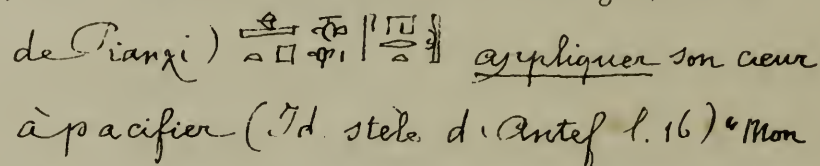 de Pianχi) appliquer son cœur
à pacifier (Id. stèle d'Antef l. 16) "Mon